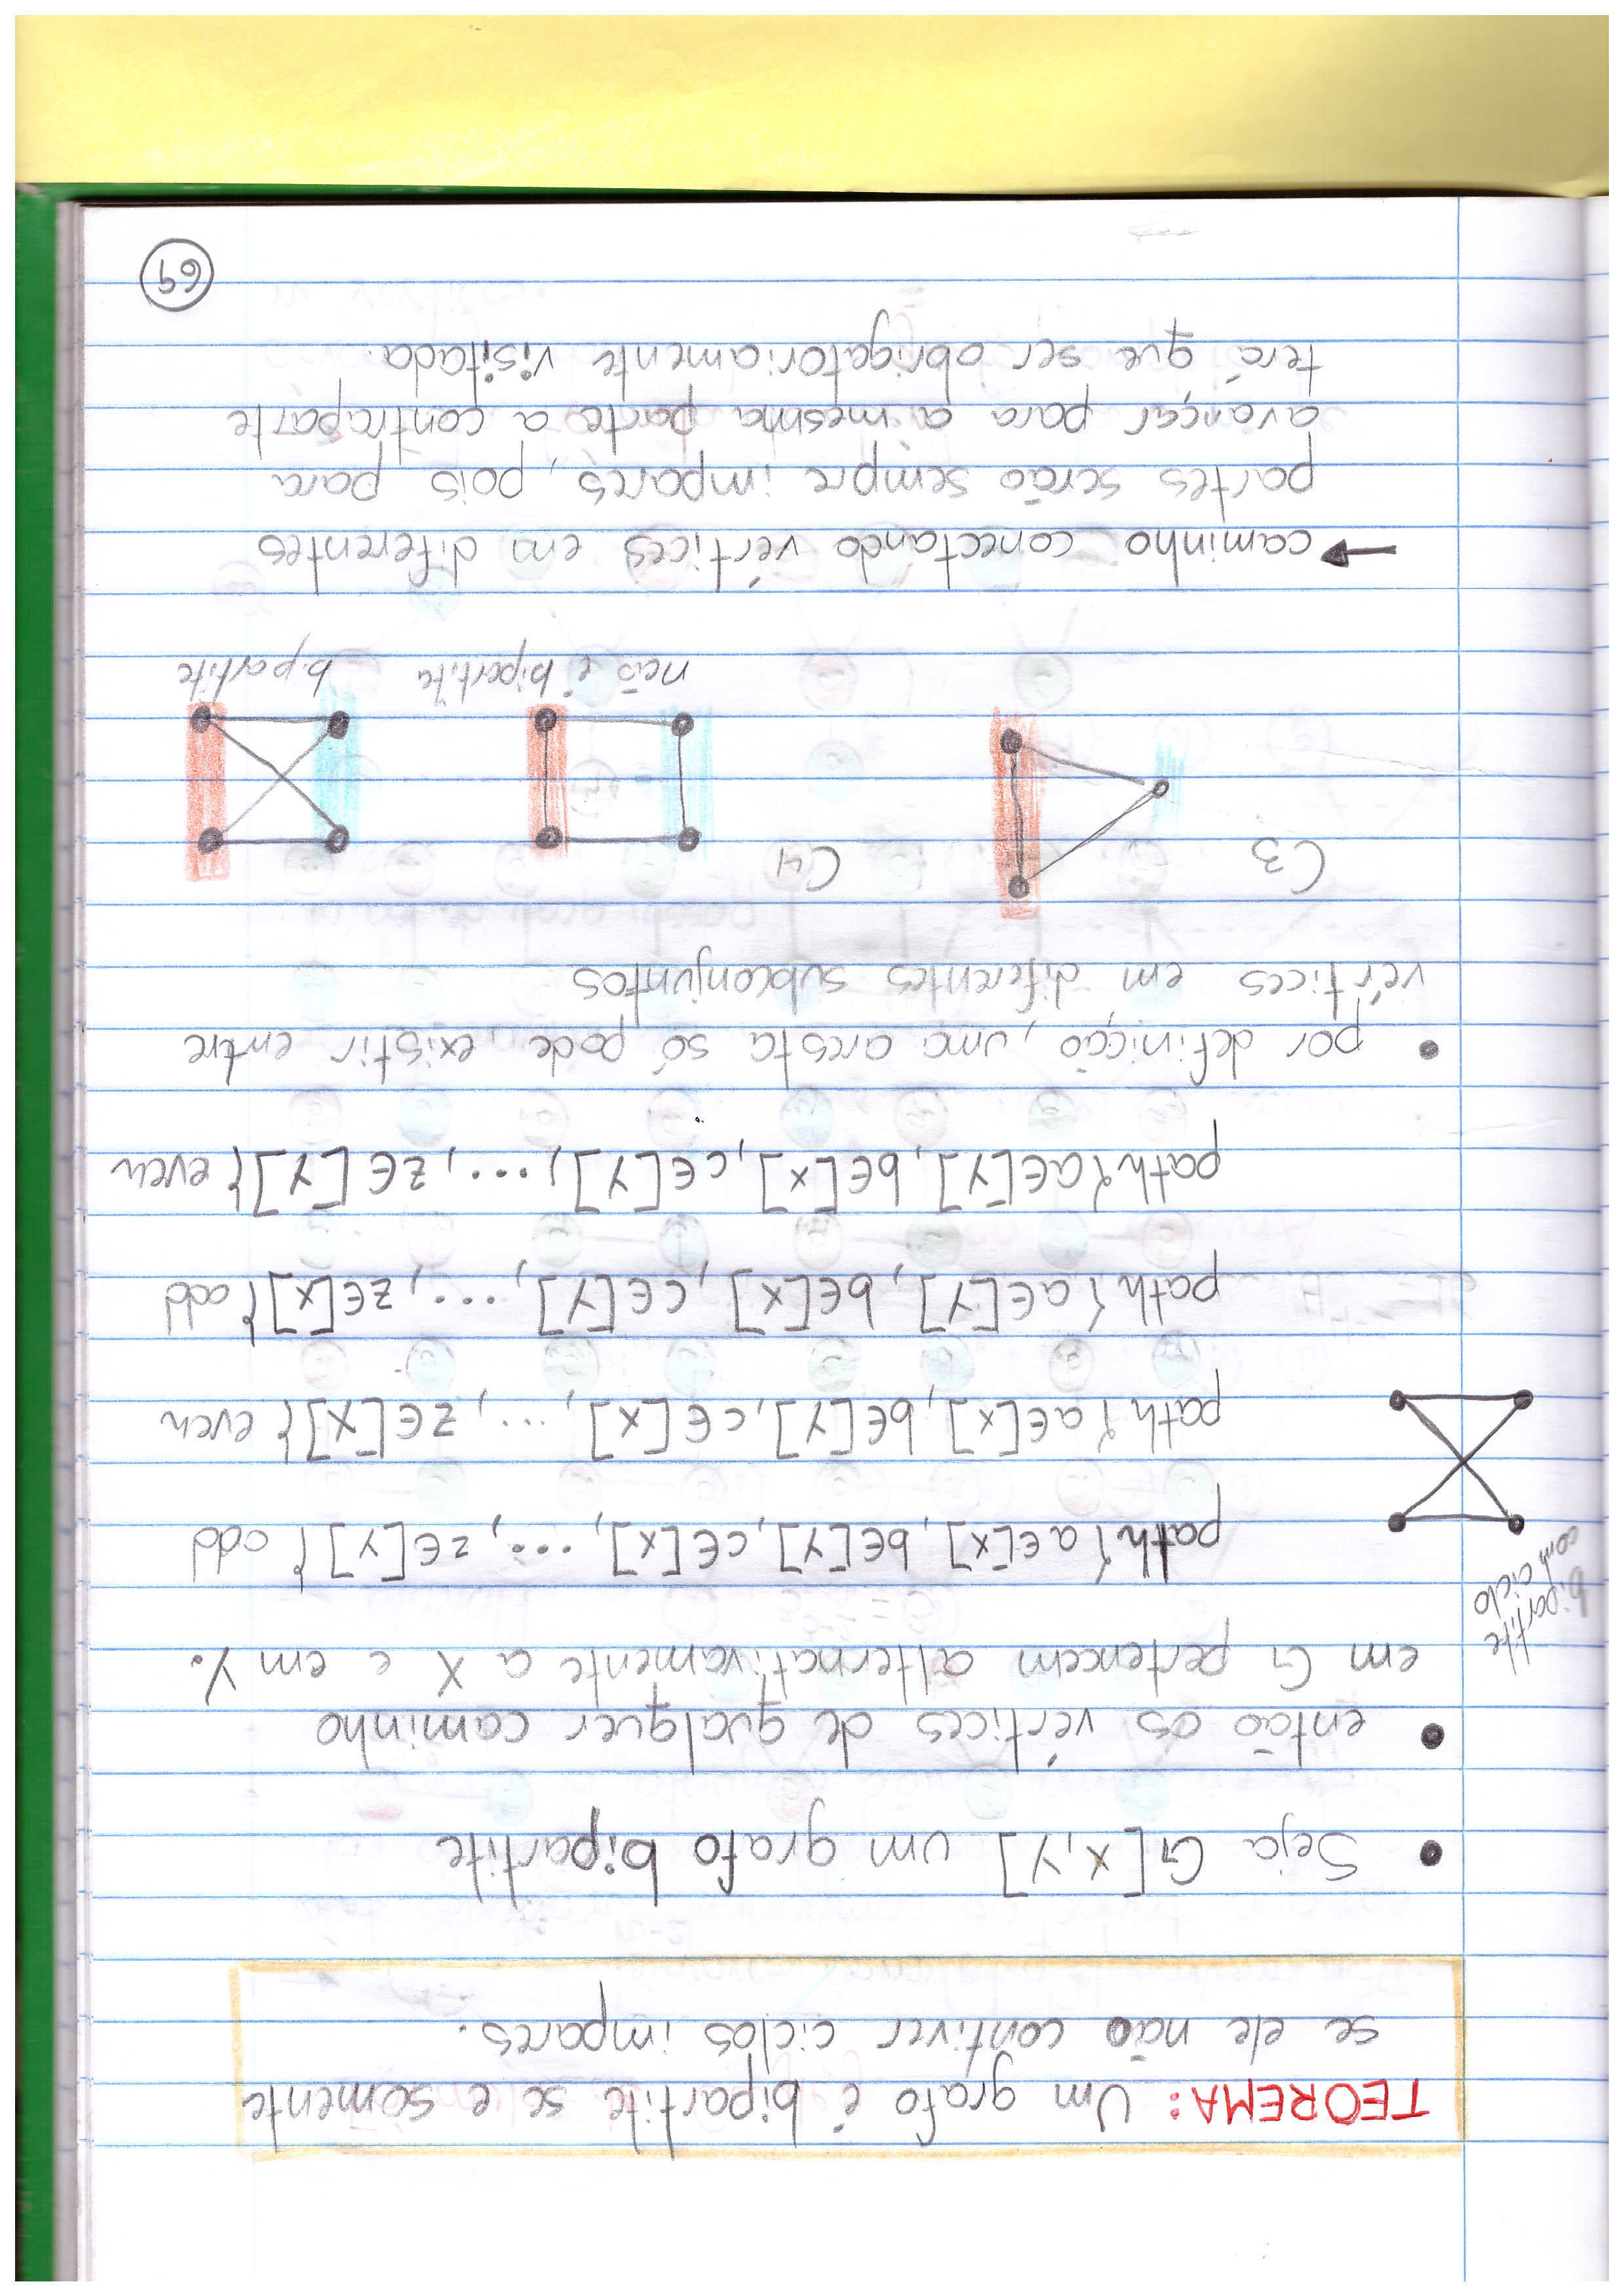 TEOREMA: Um grafo é bipartite se e somente
se ele não contiver ciclos impares.
• Seja G[X,Y] um grafo bipartite
• então os vértices de qualquer caminho
em G pertencem alternativamente a X e em Y.
bipartite
com ciclo
path{a∈[X], b∈[Y], c∈[X], ..., z∈[Y]} odd
path{a∈[X], b∈[Y], c∈[X], ..., z∈[X]} even
path{a∈[Y], b∈[X], c∈[Y], ..., z∈[X]} odd
path{a∈[Y], b∈[X], c∈[Y], ..., z∈[Y]} even
• por definição, uma aresta só pode existir entre
vértices em diferentes subconjuntos
C3 C4
não é bipartite bipartite
→ caminho conectando vértices em diferentes
partes serão sempre impares, pois para
avançar para a mesma parte a contraparte
terá que ser obrigatoriamente visitada.
69